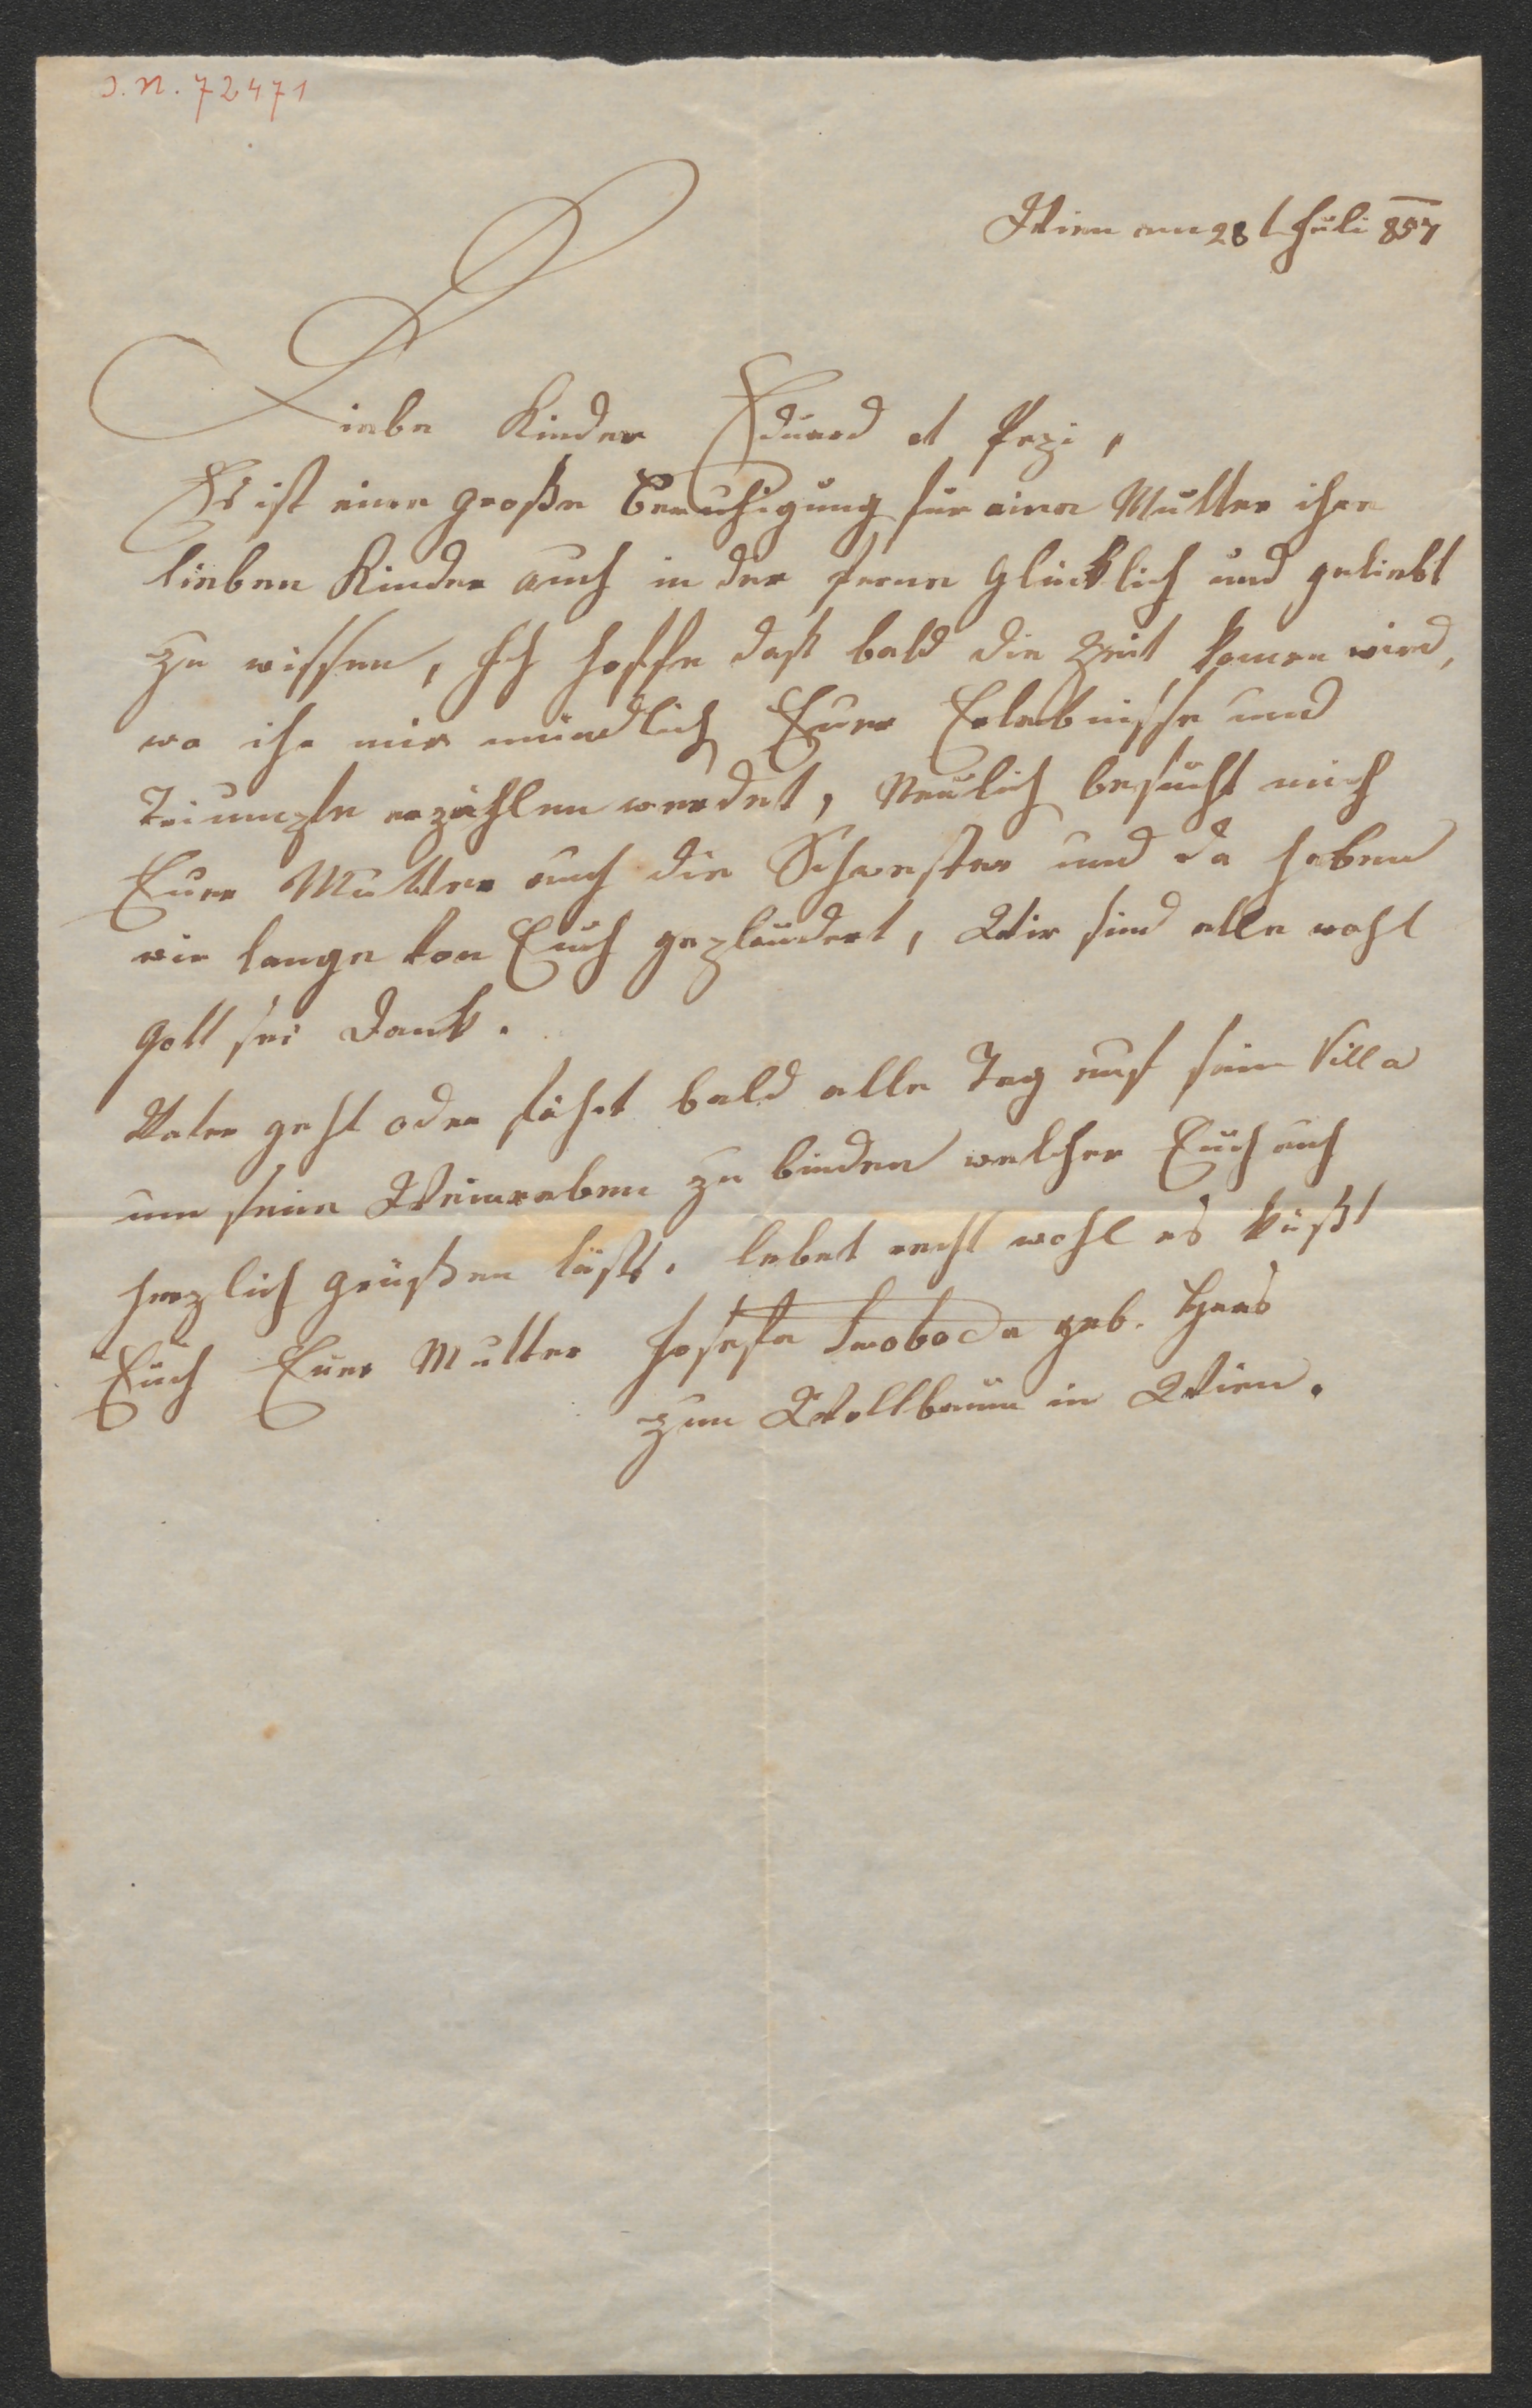 J.N. 72471
Wien am 28 t Juli 857
Liebe Kinder Eduard et Pepi,
Es ist eine große Beruhigung für eine Mutter ihre
lieben Kinder auch in der ferne Glücklich und geliebt
zu wissen, Ich hoffe daß bald die Zeit komen wird,
wo ihr mir mündlich Eure Erlebnisse und
Triumpfe erzählen werdet, Neulich besucht mich
Eure Mutter auch die Schwester und da haben
wir lange von Euch geplaudert, Wir sind alle wohl
Gott sei Dank.
Vater geht oder fährt bald alle Tag auf sein Villa
um seine Weinreben zu binden welcher Euch auch
herzlich grüßen läßt. lebet recht wohl es küßt
Euch Eure Mutter Josefa Swoboda geb. Haas
zum Wollbaum in Wien.